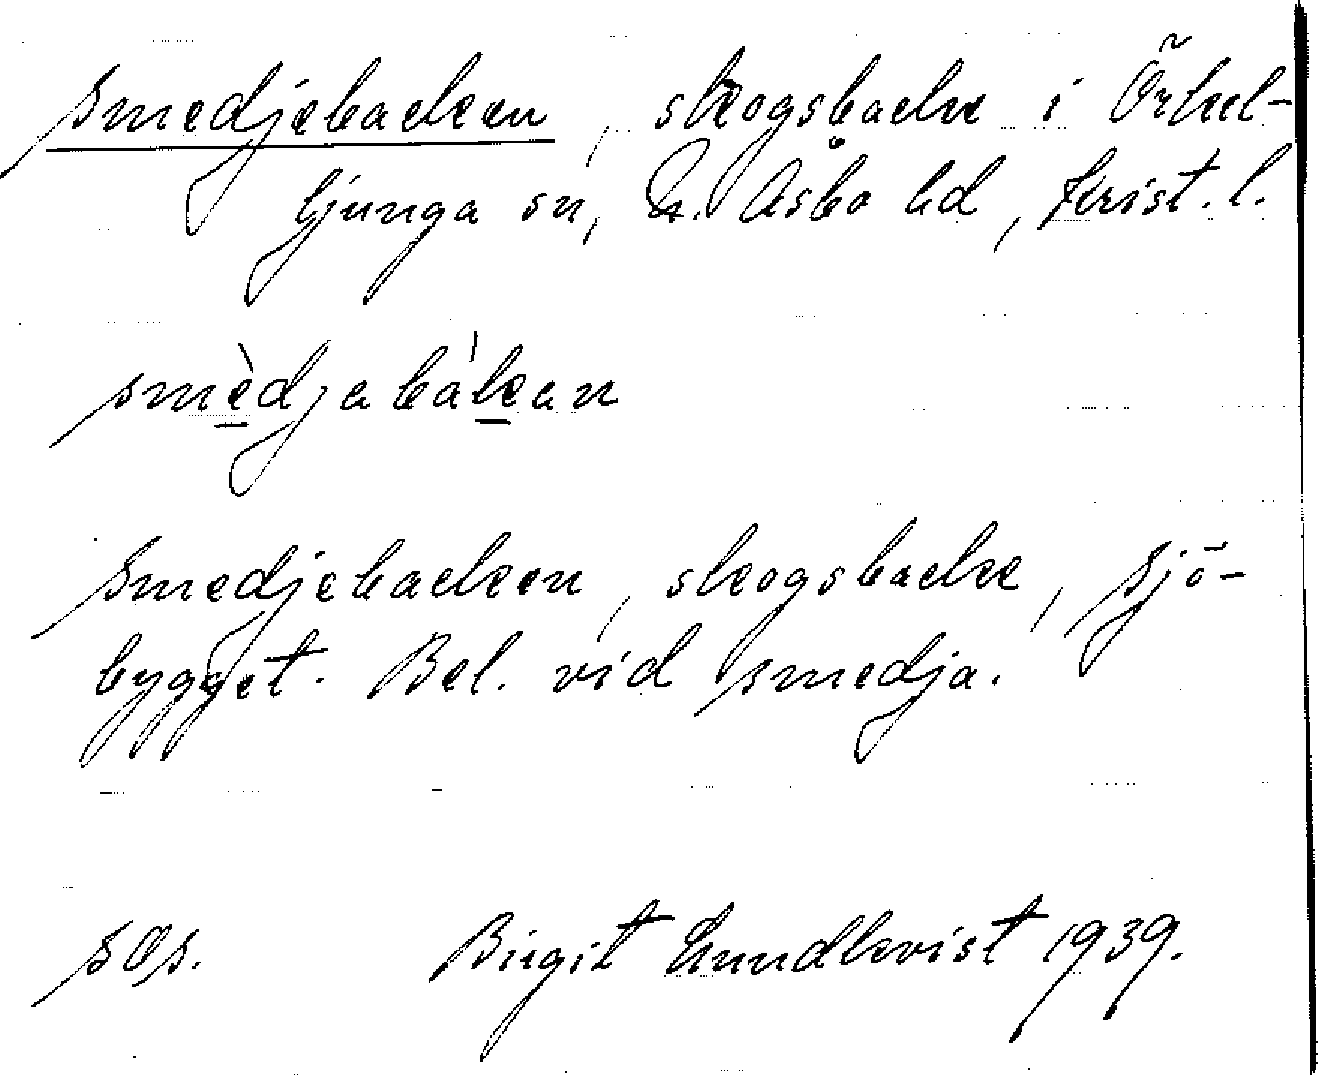 Smedjebacken, skogsbacke i Örkel-
ljunga sn, N. Åsbo hd, Krist. l.
smèdjabákan
Smedjebacken, skogsbacke, Sjö-
bygget. Bel. vid smedja.
Birgit Lundkvist 1939.